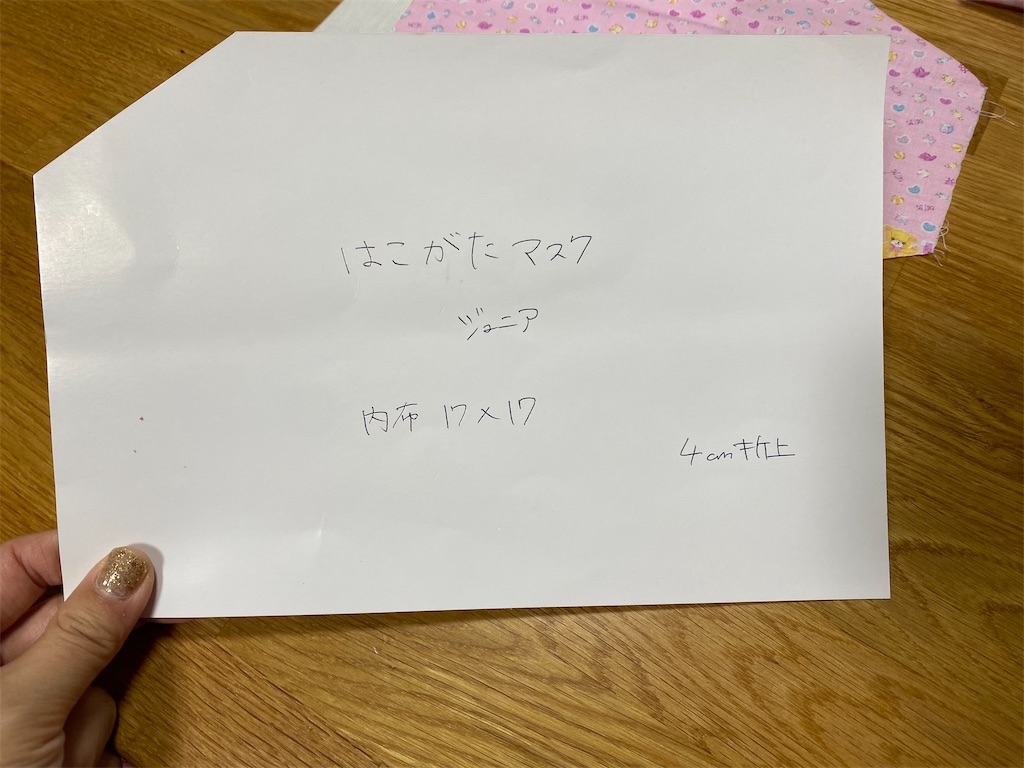 はこがたマスク
ジュニア
内布 17×17
4cm折上